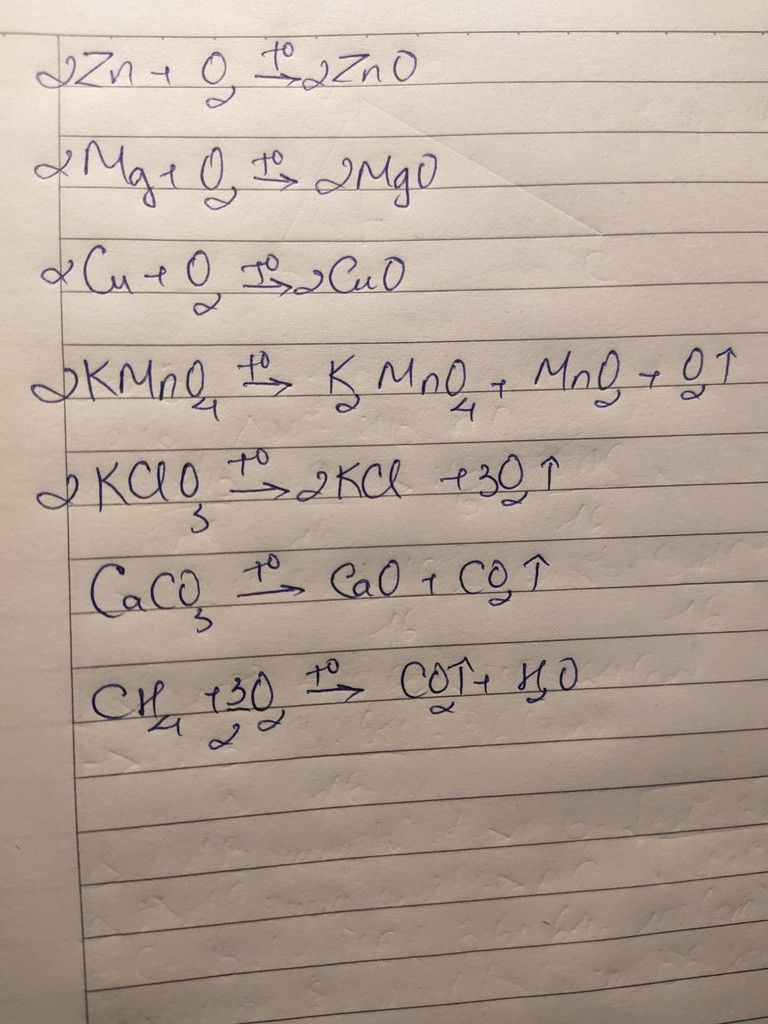 2Zn + O₂ →^{t°} 2ZnO
2Mg + O₂ →^{t°} 2MgO
2Cu + O₂ →^{t°} 2CuO
2KMnO₄ →^{t°} K₂MnO₄ + MnO₂ + O₂↑
2KClO₃ →^{t°} 2KCl + 3O₂↑
CaCO₃ →^{t°} CaO + CO₂↑
CH₄ + 3/2 O₂ →^{t°} CO₂↑ + H₂O